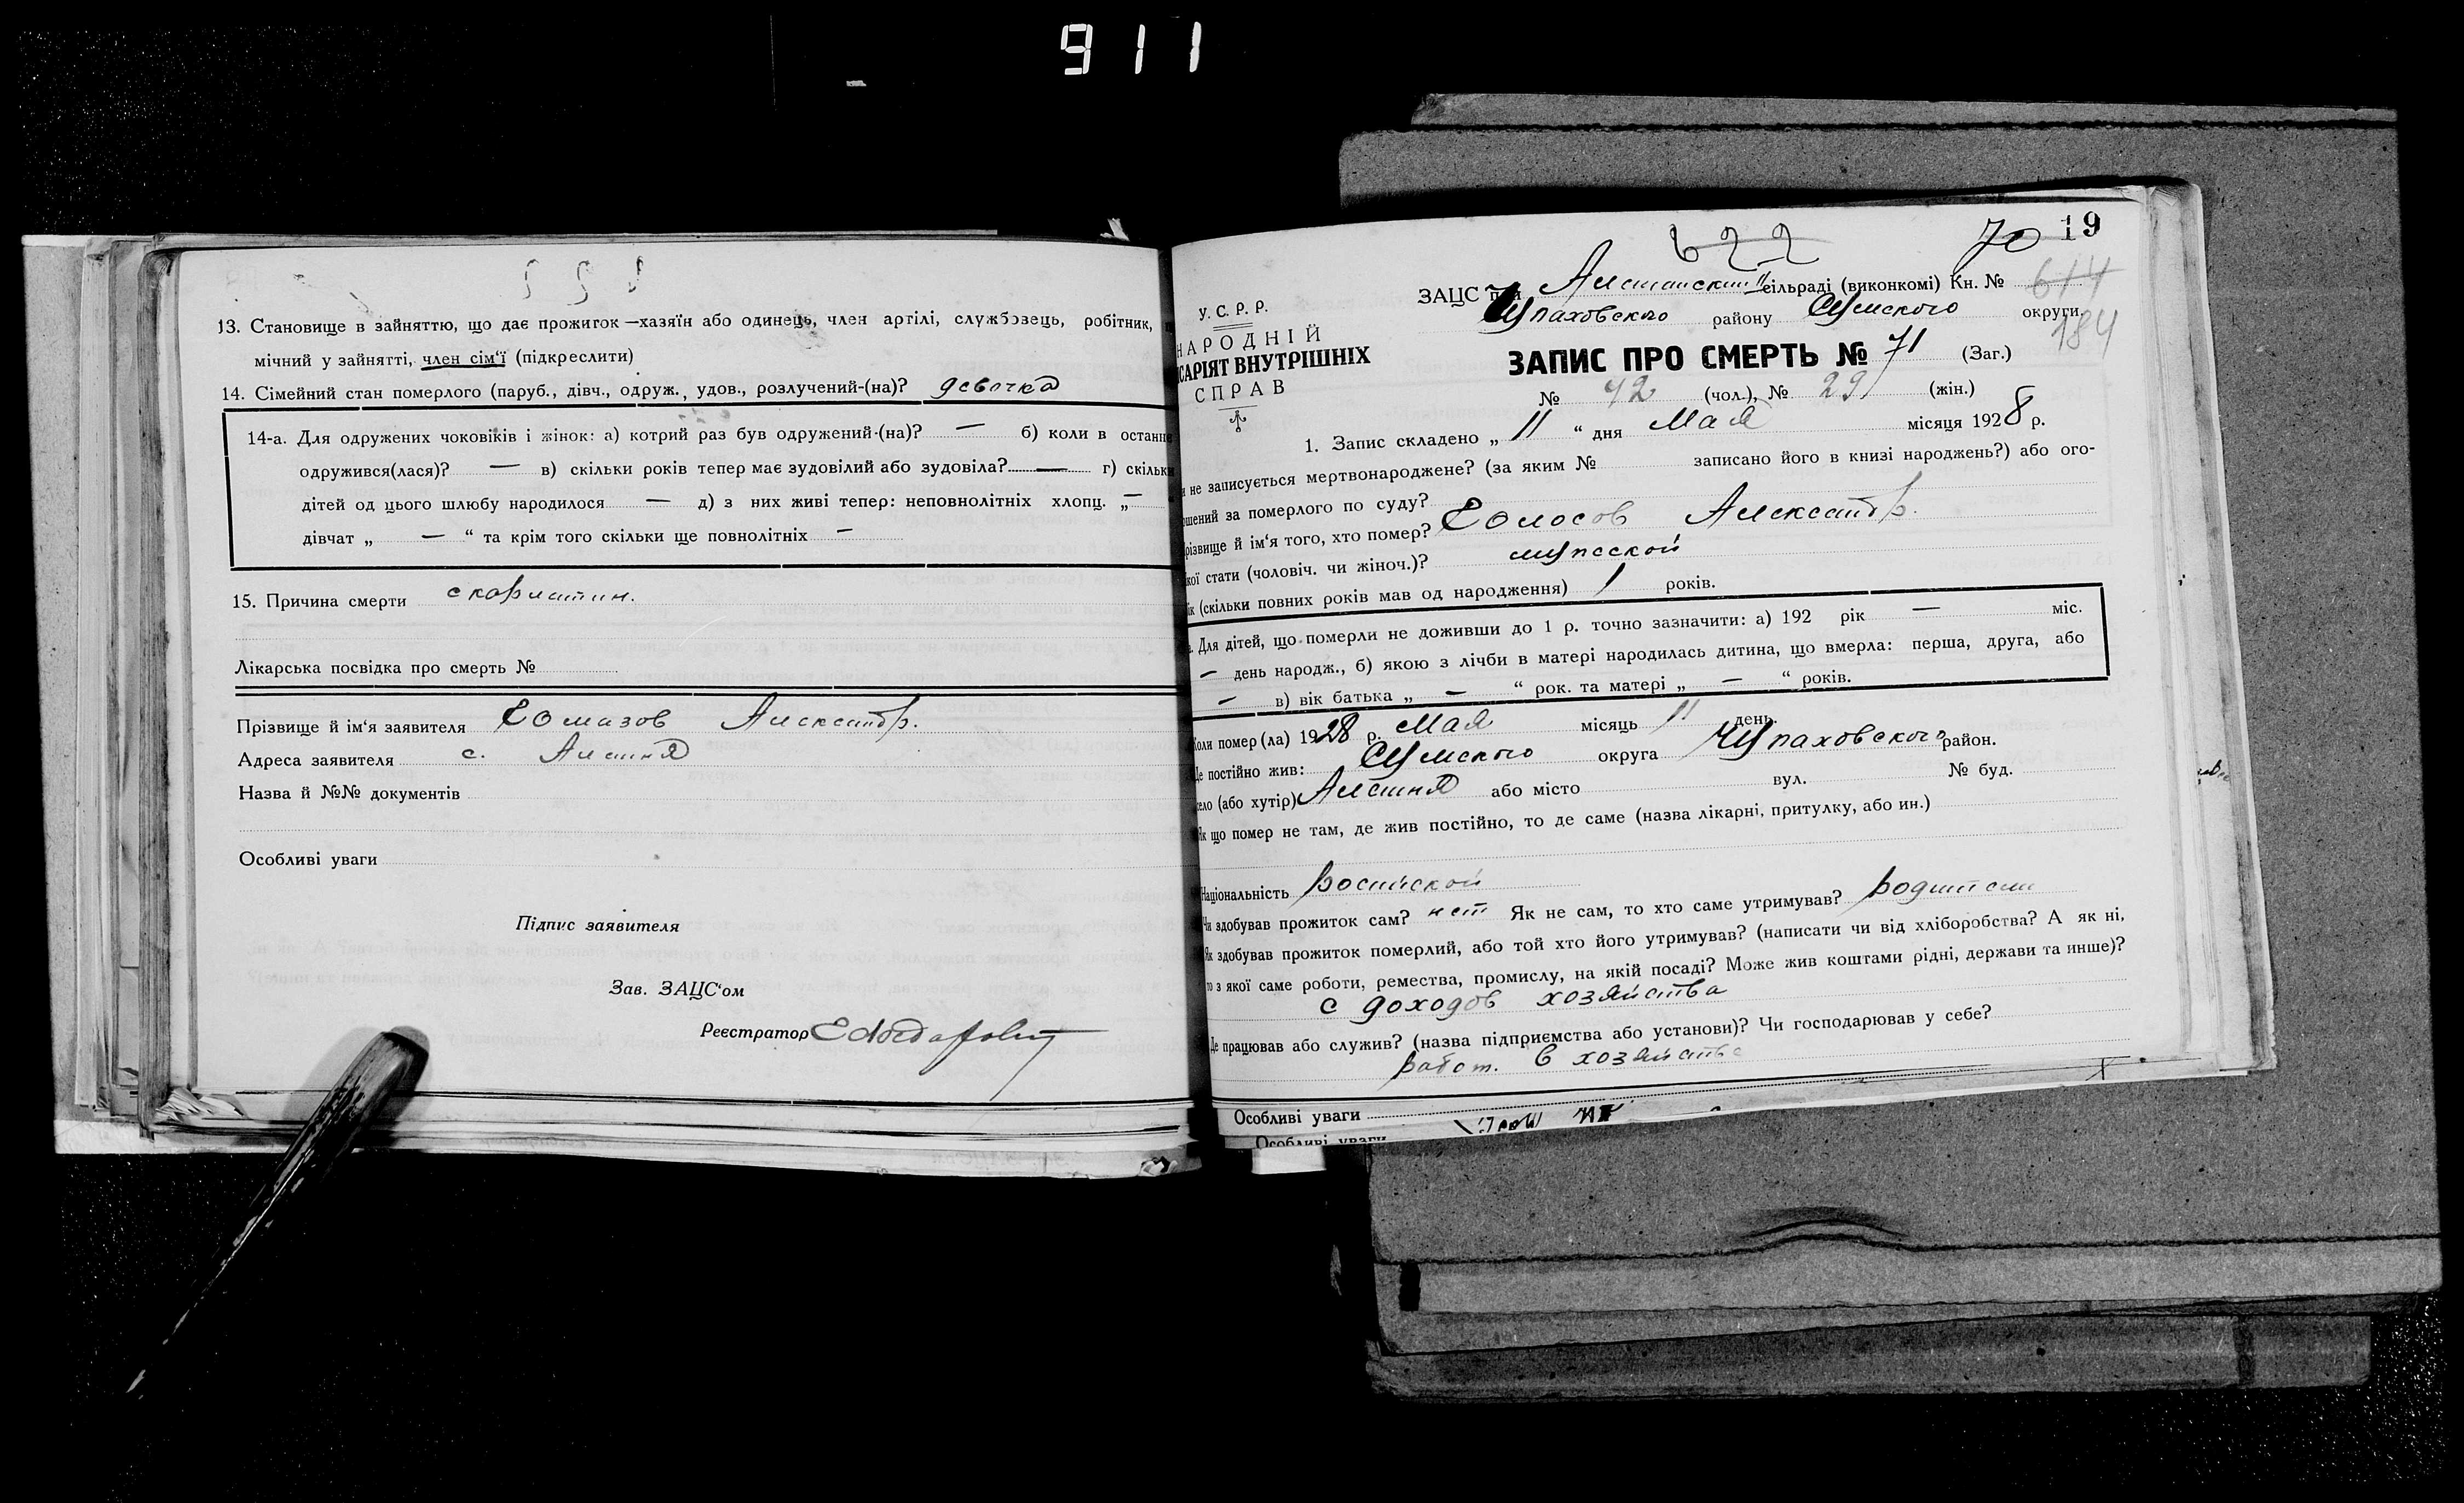 911
13. Становище в зайняттю, що дає прожиток—хазяїн або одинець, член артілі, службовець, робітник,
мічний у зайнятті, член сім‘ї (підкреслити)
14. Сімейний стан померлого (паруб., дівч., одруж., удов., розлучений-(на)? девочка
14-а. Для одружених чоковіків і жінок: а) котрий раз був одружений-(на)? — б) коли в останнє
одружився(лася)? — в) скільки років тепер має зудовілий або зудовіла? — г) скільки
дітей од цього шлюбу народилося — д) з них живі тепер: неповнолітніх хлопц. „—
дівчат „ — “ та крім того скільки ще повнолітніх —
15. Причина смерти скарлатин.
Лікарська посвідка про смерть №
Прізвище й ім‘я заявителя Александр.
Адреса заявителя с. Алешня
Назва й №№ документів
Особливі уваги
Підпис заявителя
Зав. ЗАЦС‘ом
Реєстратор
622 70 19
ЗАЦС при сільраді (виконкомі) Кн. № 614
Чупаховского району Сумского округи.
184
У. С. Р. Р.
НАРОДНІЙ
САРІЯТ ВНУТРІШНІХ
СПРАВ
ЗАПИС ПРО СМЕРТЬ № 71 (Заг.)
№ 42 (чол.), № 29 (жін.)
1. Запис складено „ 11 “ дня Мая місяця 1928 р.
и не записується мертвонароджене? (за яким № записано його в книзі народжень?) або ого-
ошений за померлого по суду?
різвище й ім‘я того, хто помер? Александр.
кої стати (чоловіч. чи жіноч.)? мужеской
ік (скільки повних років мав од народження) 1 років.
а. Для дітей, що померли не доживши до 1 р. точно зазначити: а) 192 рік — міс.
— день народж., б) якою з лічби в матері народилась дитина, що вмерла: перша, друга, або
— в) вік батька „ — “ рок. та матері „ — “ років.
Коли помер (ла) 1928 р. Мая місяць 11 день.
Де постійно жив: Сумского округа Чупаховского район.
село (або хутір) Алешня або місто вул. № буд.
Як що помер не там, де жив постійно, то де саме (назва лікарні, притулку, або ин.)
Національність
Чи здобував прожиток сам? нет Як не сам, то хто саме утримував? родители
Як здобував прожиток померлий, або той хто його утримував? (написати чи від хліборобства? А як ні,
то з якої саме роботи, ремества, промислу, на якій посаді? Може жив коштами рідні, держави та инше)?
с доходов хозяйства
Де працював або служив? (назва підприємства або установи)? Чи господарював у себе?
работ. в хозяйстве
Особливі уваги
Особливі уваги